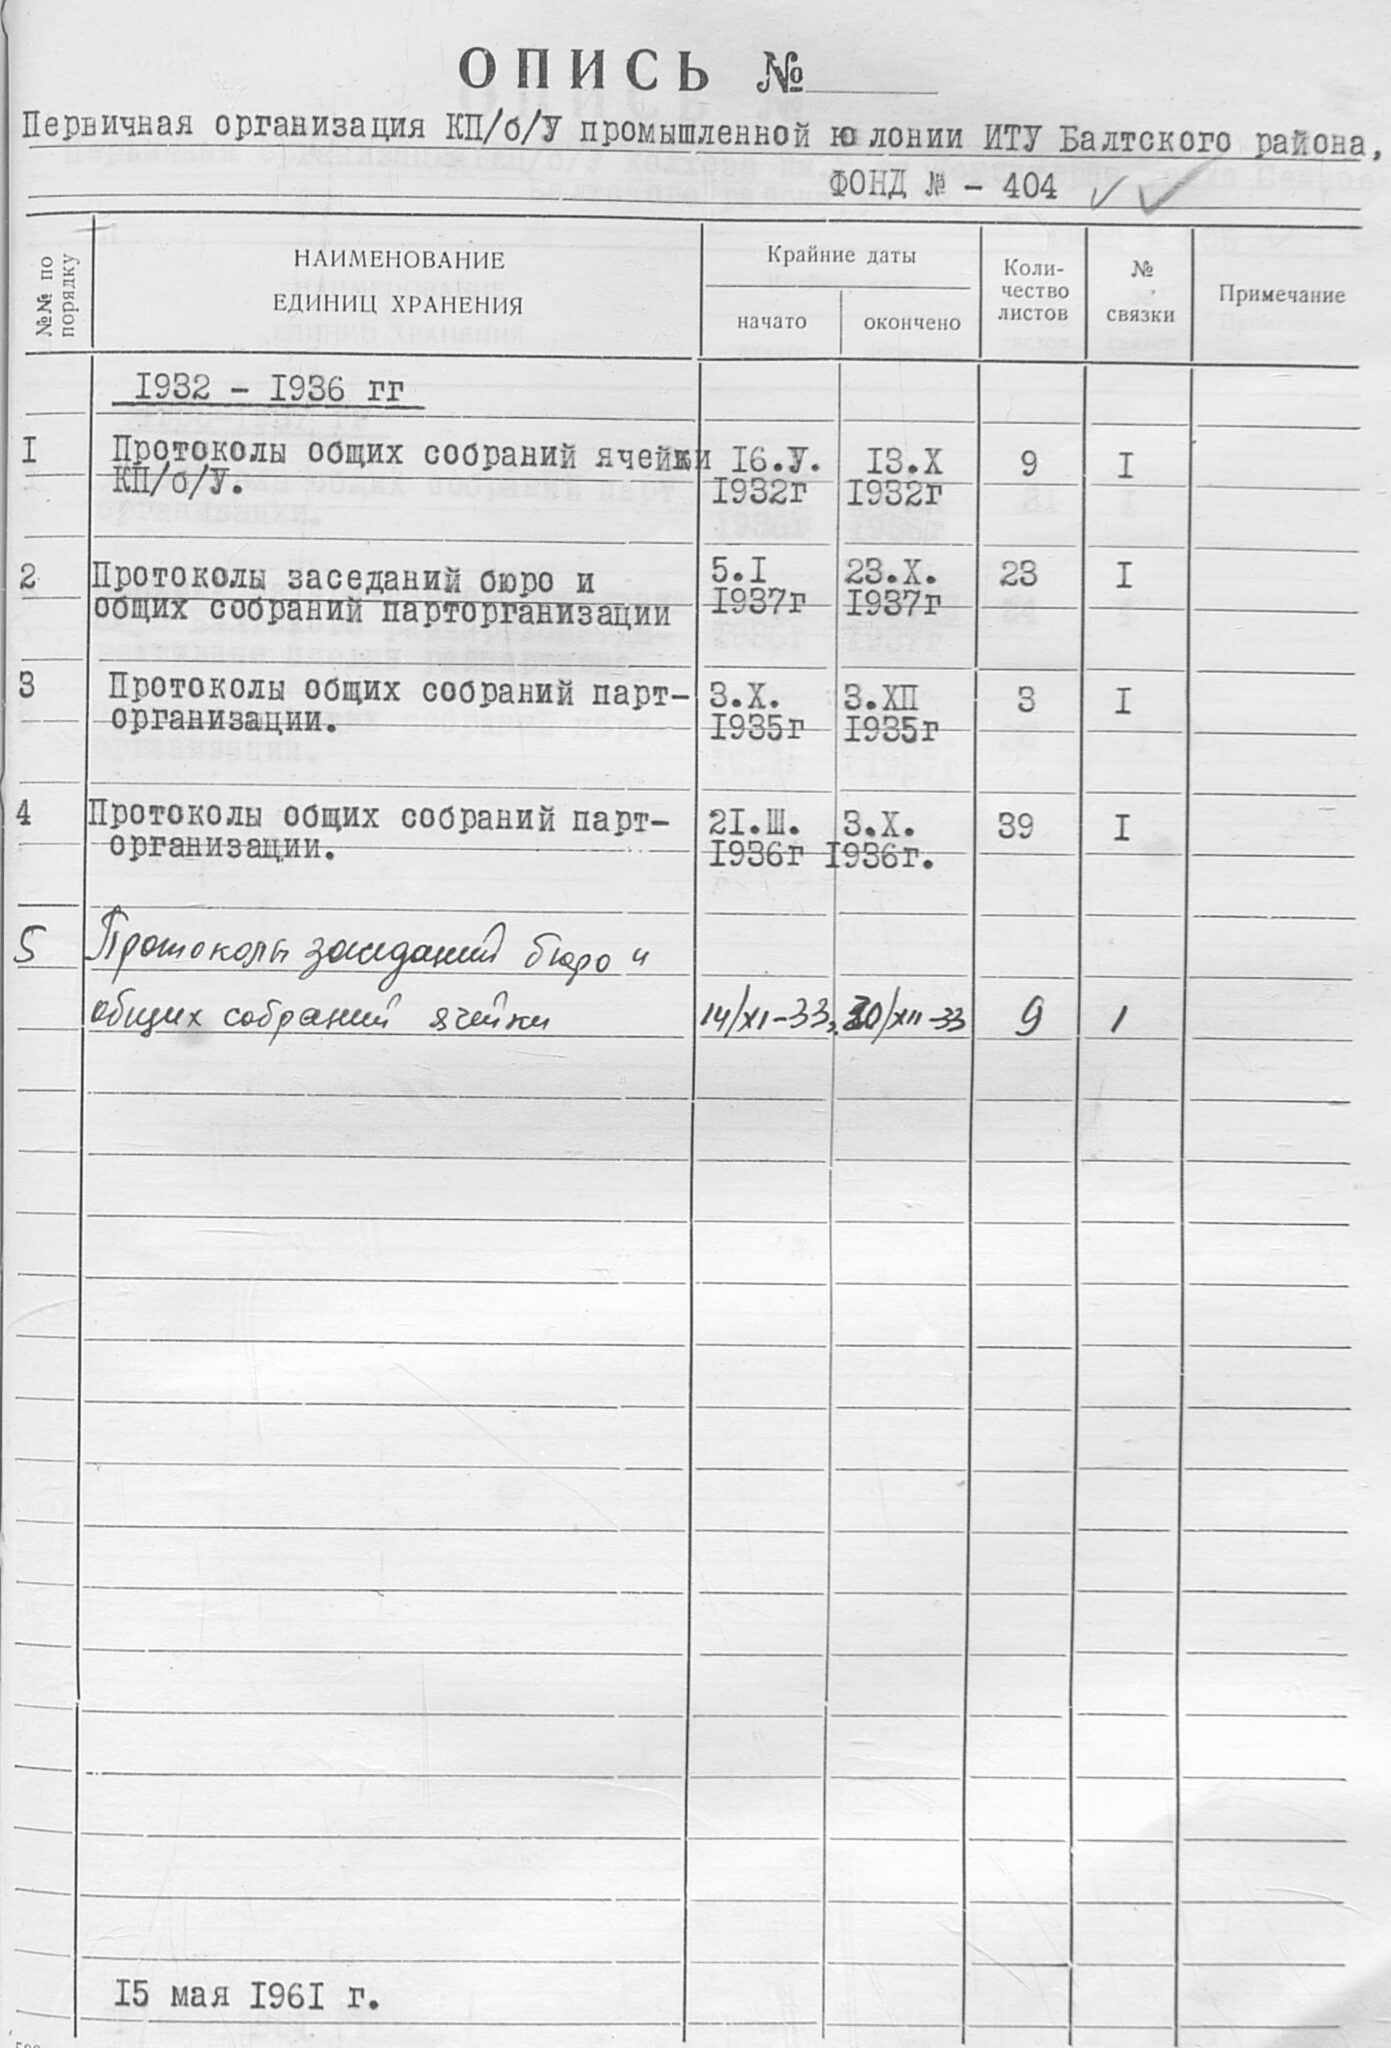 ОПИСЬ №
Первичная организация КП/б/У промышленной ю лонии ИТУ Балтского района,
ФОНД № - 404
№№ по порядку
НАИМЕНОВАНИЕ ЕДИНИЦ ХРАНЕНИЯ
Крайние даты
начато
окончено
Количество листов
№ связки
Примечание
1932 - 1936 гг
I Протоколы общих собраний ячейки 16.У. 13.Х 9 I
КП/б/У. 1932г 1932г
2 Протоколы заседаний бюро и 5.I 23.Х. 23 I
общих собраний парторганизации 1937г 1937г
3 Протоколы общих собраний парт- 3.Х. 3.ХП 3 I
организации. 1935г 1935г
4 Протоколы общих собраний парт- 21.Ш. 3.Х. 39 I
организации. 1936г 1936г.
5 Протоколы заседаний бюро и
общих собраний ячейки 14/XI-33г. 30/XII-33 9 1
15 мая 1961 г.